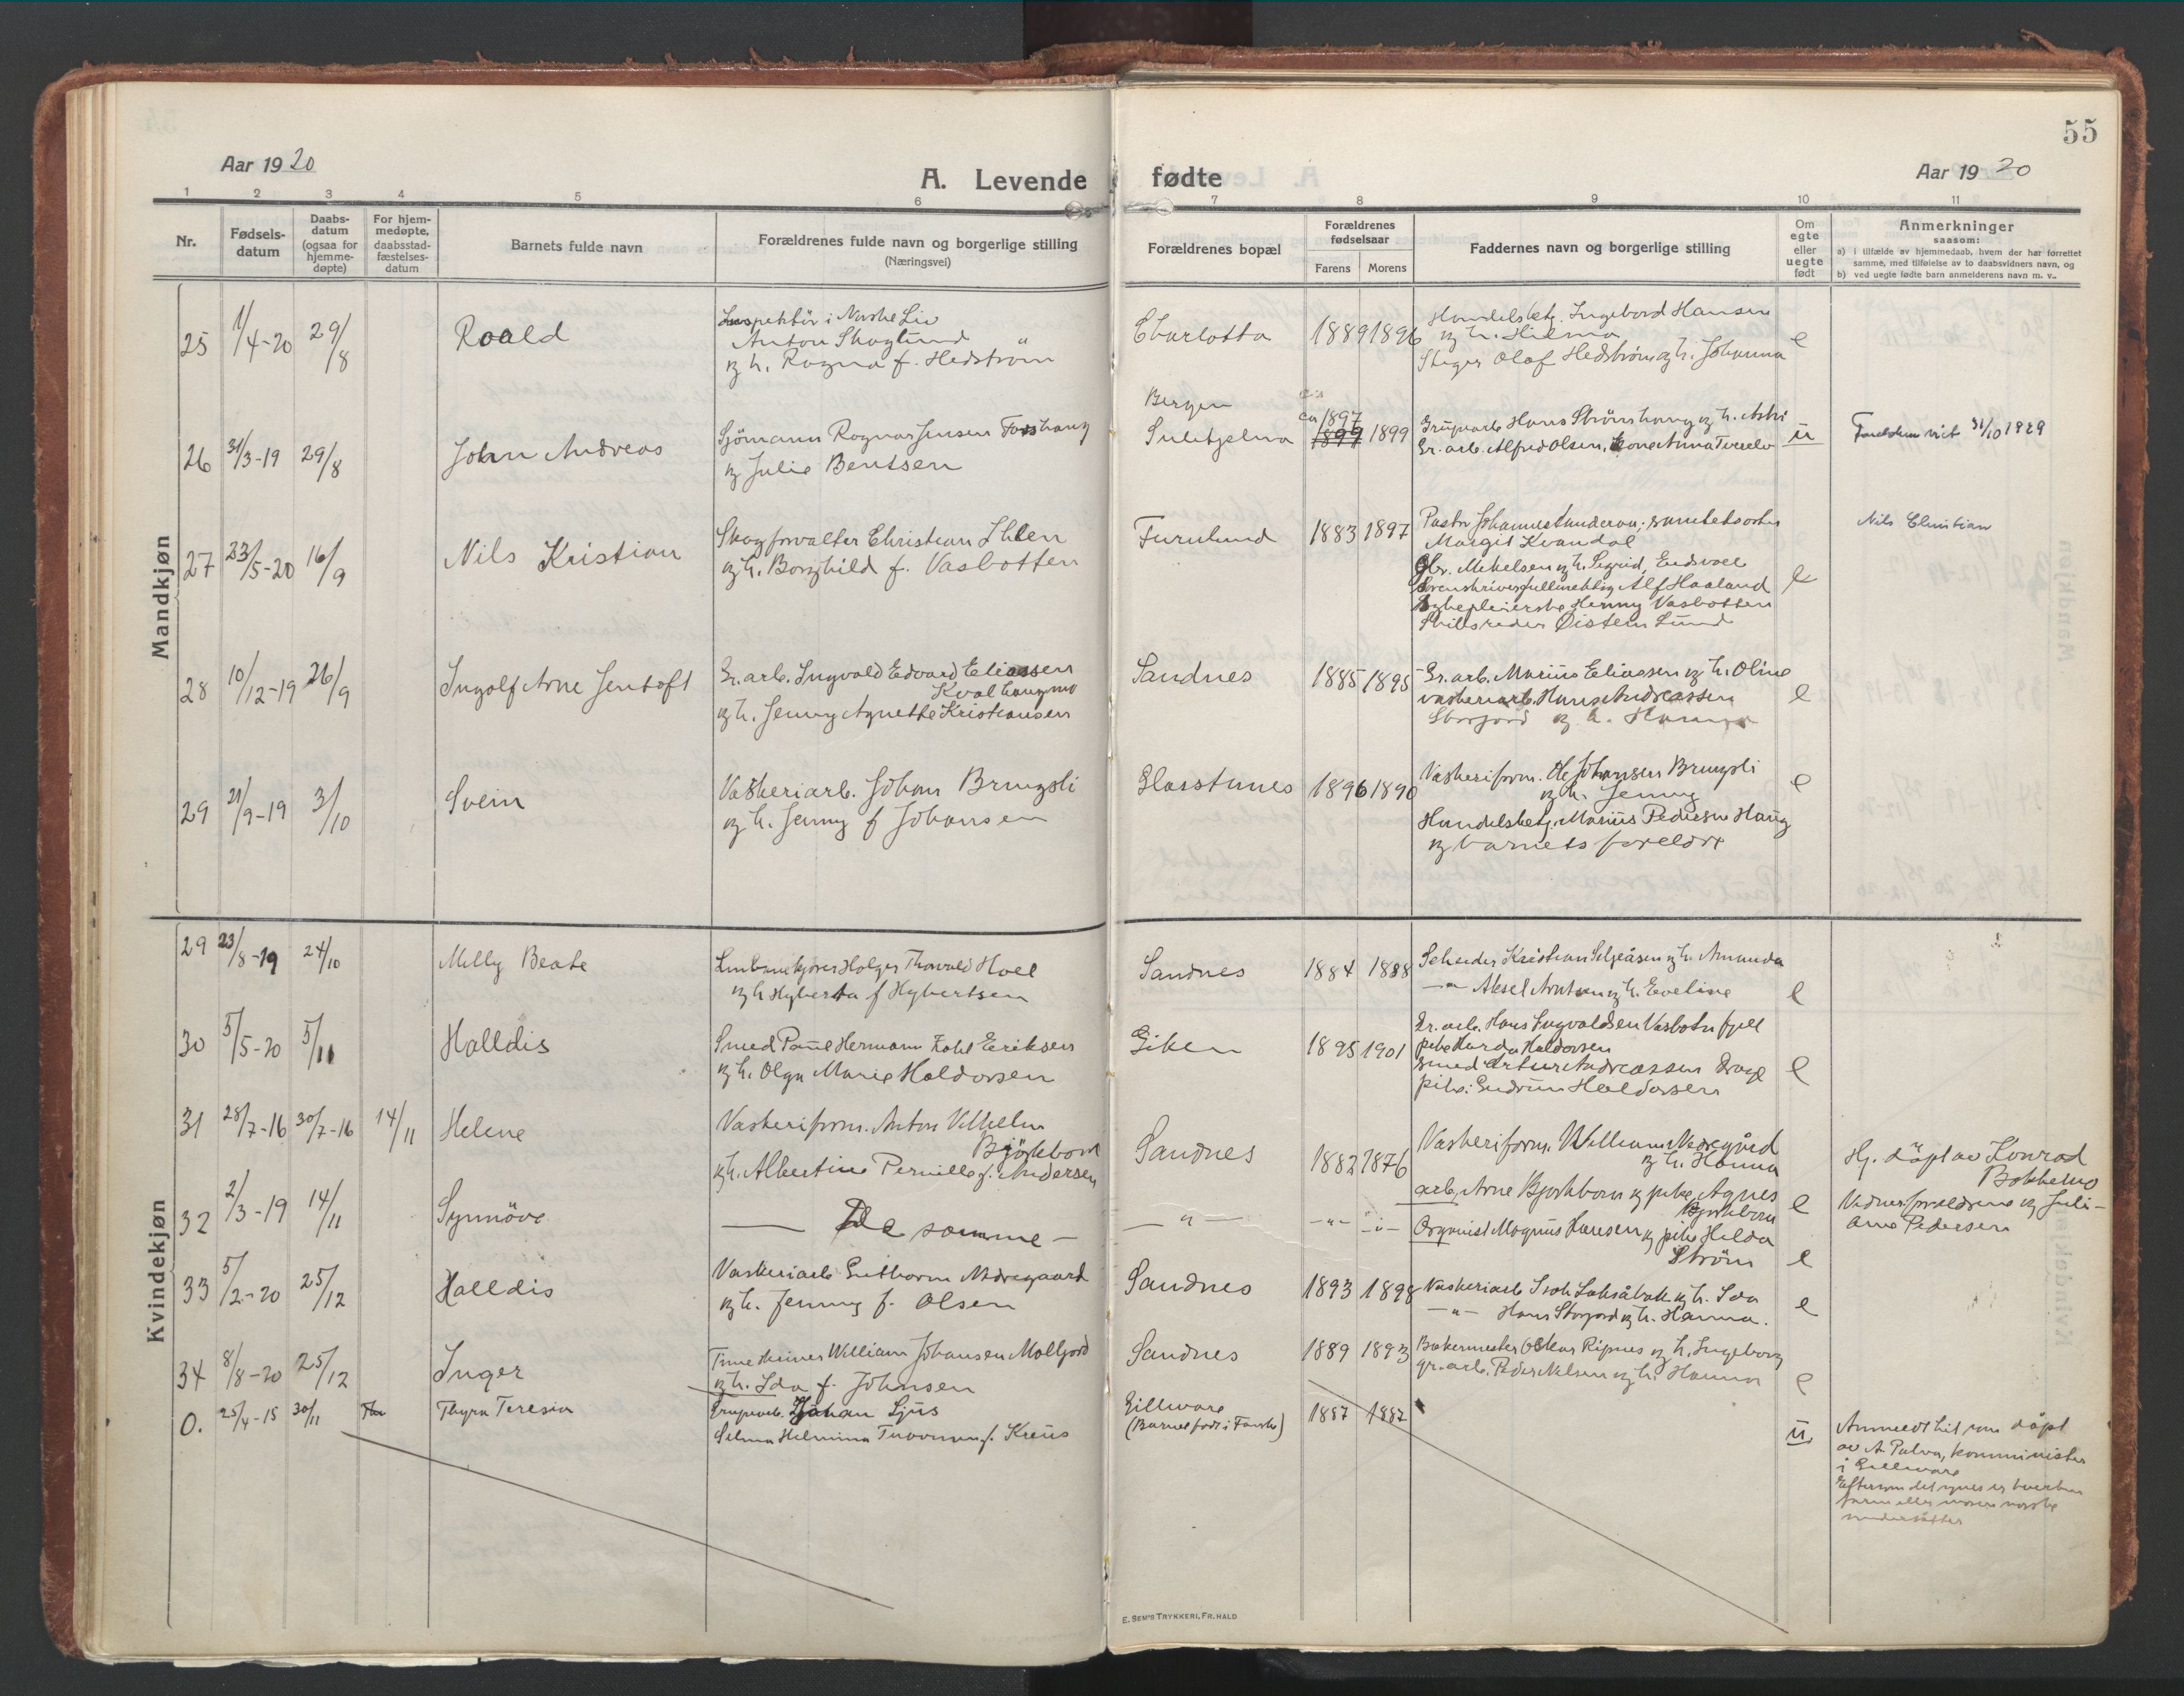 55
Aar 1920
A. Levende fødte
Aar 1920
1 2 3 4 5 6 7 8 9 10 11
Nr.
Fødsels-
datum
Daabs-
datum
(ogsaa for
hjemme-
døpte)
For hjem-
medøpte,
daabsstad-
fæstelses-
datum
Barnets fulde navn
Forældrenes fulde navn og borgerlige stilling
(Næringsvei)
Forældrenes bopæl
Forældrenes
fødselsaar
Farens Morens
Faddernes navn og borgerlige stilling
Om
egte
eller
uegte
født
Anmerkninger
saasom:
a) i tilfælde av hjemmedaab, hvem der har forrettet
samme, med tilføielse av to daabsvidners navn, og
b) ved uegte fødte barn anmelderens navn m. v..
Mandkjøn
25 1/4-20 29/8 Roald
Inspektör i Norske Liv
Anton Skoglund
og h. Ragna f. Hedström
Charlotta 1889 1896
Handelsbetj. Ingebord Hansen
og h. Hilma
Stiger Olaf Hedström og h. Johanna
e
26 31/3-19 29/8 John Andreas
Sjömann Ragnar Jensen Forshaug
og Julie Bentsen
Bergen
Sulitjelma
ca 1897
1899 1899
Grubearb. Hans Strømhaug og h. Astri
Gr. arb. Alfred Olsen, kone Anna Tverelv
u
Foreldrene viet 31/10 1929
27 23/5-20 16/9 Nils Kristian
Skogforvalter Christian Ihlen
og h. Borghild f. Vasbotten
Furulund 1883 1897
Pastor Johannes Sanderau; sunhetssøster
Margit Kvandal
Gbr. Mikelsen og h. Sigrid, Eidsvoll
Sorenskriverfullmektig Alf Haaland
Sykepleierske Henny Vasbotten
Skibsreder Øistein Lund
e
Nils Christian
28 10/12-19 26/9 Ingolf Arne Jentoft
Gr. arb. Ingvald Edvard Eliassen
Kvalhaugmo
og h. Jenny Agnethe Kristiansen
Sandnes 1885 1895
Gr. arb. Marius Eliassen og h. Oline
vaskeriarb. Hans Andreassen
Storjord og h. Hanna
e
29 21/9-19 3/10 Svein
Vaskeriarb. Johan Brungsli
og h. Jenny f Johansen
Glasstunes 1896 1890
Vaskeriform. Ole Johansen Brungsli
og h. Jenny
Handelsbetj. Marius Pedersen Haug
og barnets foreldre
e
Kvindekjøn
29 23/8-19 24/10 Milly Beate
Linbanekjører Holger Thorvald Hoel
og h Hyberta f Hybertsen
Sandnes 1884 1888
Scheider Kristian Seljeåsen og h. Amanda
—"— Aksel Arntsen og h. Eveline
e
30 5/5-20 5/11 Halldis
Smed Paul Hermann Kohl Eriksen
og h. Olga Marie Haldorsen
Giken 1895 1901
Gr. arb. Hans Ingvaldsen Vasbotnfjell
pike Harda Haldorsen
Smed Artur Andreassen Drage
pike: Gudrun Haldorsen
e
31 28/7-16 30/7-16 14/11 Helene
Vaskeriform. Anton Vilhelm
Björkborn
og h. Albertine Pernille f. Andersen
Sandnes 1882 1876
Vaskeriform. William Nedregård
og h. Hanna
arb. Arne Bjørkborn og pike Agnes
Bjørkborn
e
Hj. döpt av Konrad
Bakkemo
Vidner foreldrene og Juli-
ane Pedersen
32 2/3-19 14/11 Synnöve
— De samme —
— " — — " — — " —
Organist Magnus Hansen og pike Hilda
Ström
e
33 5/2-20 25/12 Halldis
Vaskeriarb Guthorm Nedregaard
og h. Jenny f. Olsen
Sandnes 1893 1898
Vaskeriarb Isak Laksåbakk og h. Ida
—"— Hans Storjord og h. Hanna.
e
34 8/8-20 25/12 Inger
Timeskriver William Johansen Moljord
og h. Ida f. Johnsen
Sandnes 1889 1893
Bakermester Oskar Ripnes og h. Ingeborg
gr. arb. Peder Nelsen og h. Hanna
e
0. 25/4-15 30/11 Thyra Teresia
Grubearb. Johan Ljus
Selma Helmina Tuovinen f. Kreus
Gillivare
(Barnet født i Fauske)
1887 1887
u.
Anmeldt hit som döpt
av A. Palva, komminister
i Gellivare
Eftersom det synes er hverken
faren eller moren norske
undersåtter
E. SEM'S TRYKKERI, FR.HALD